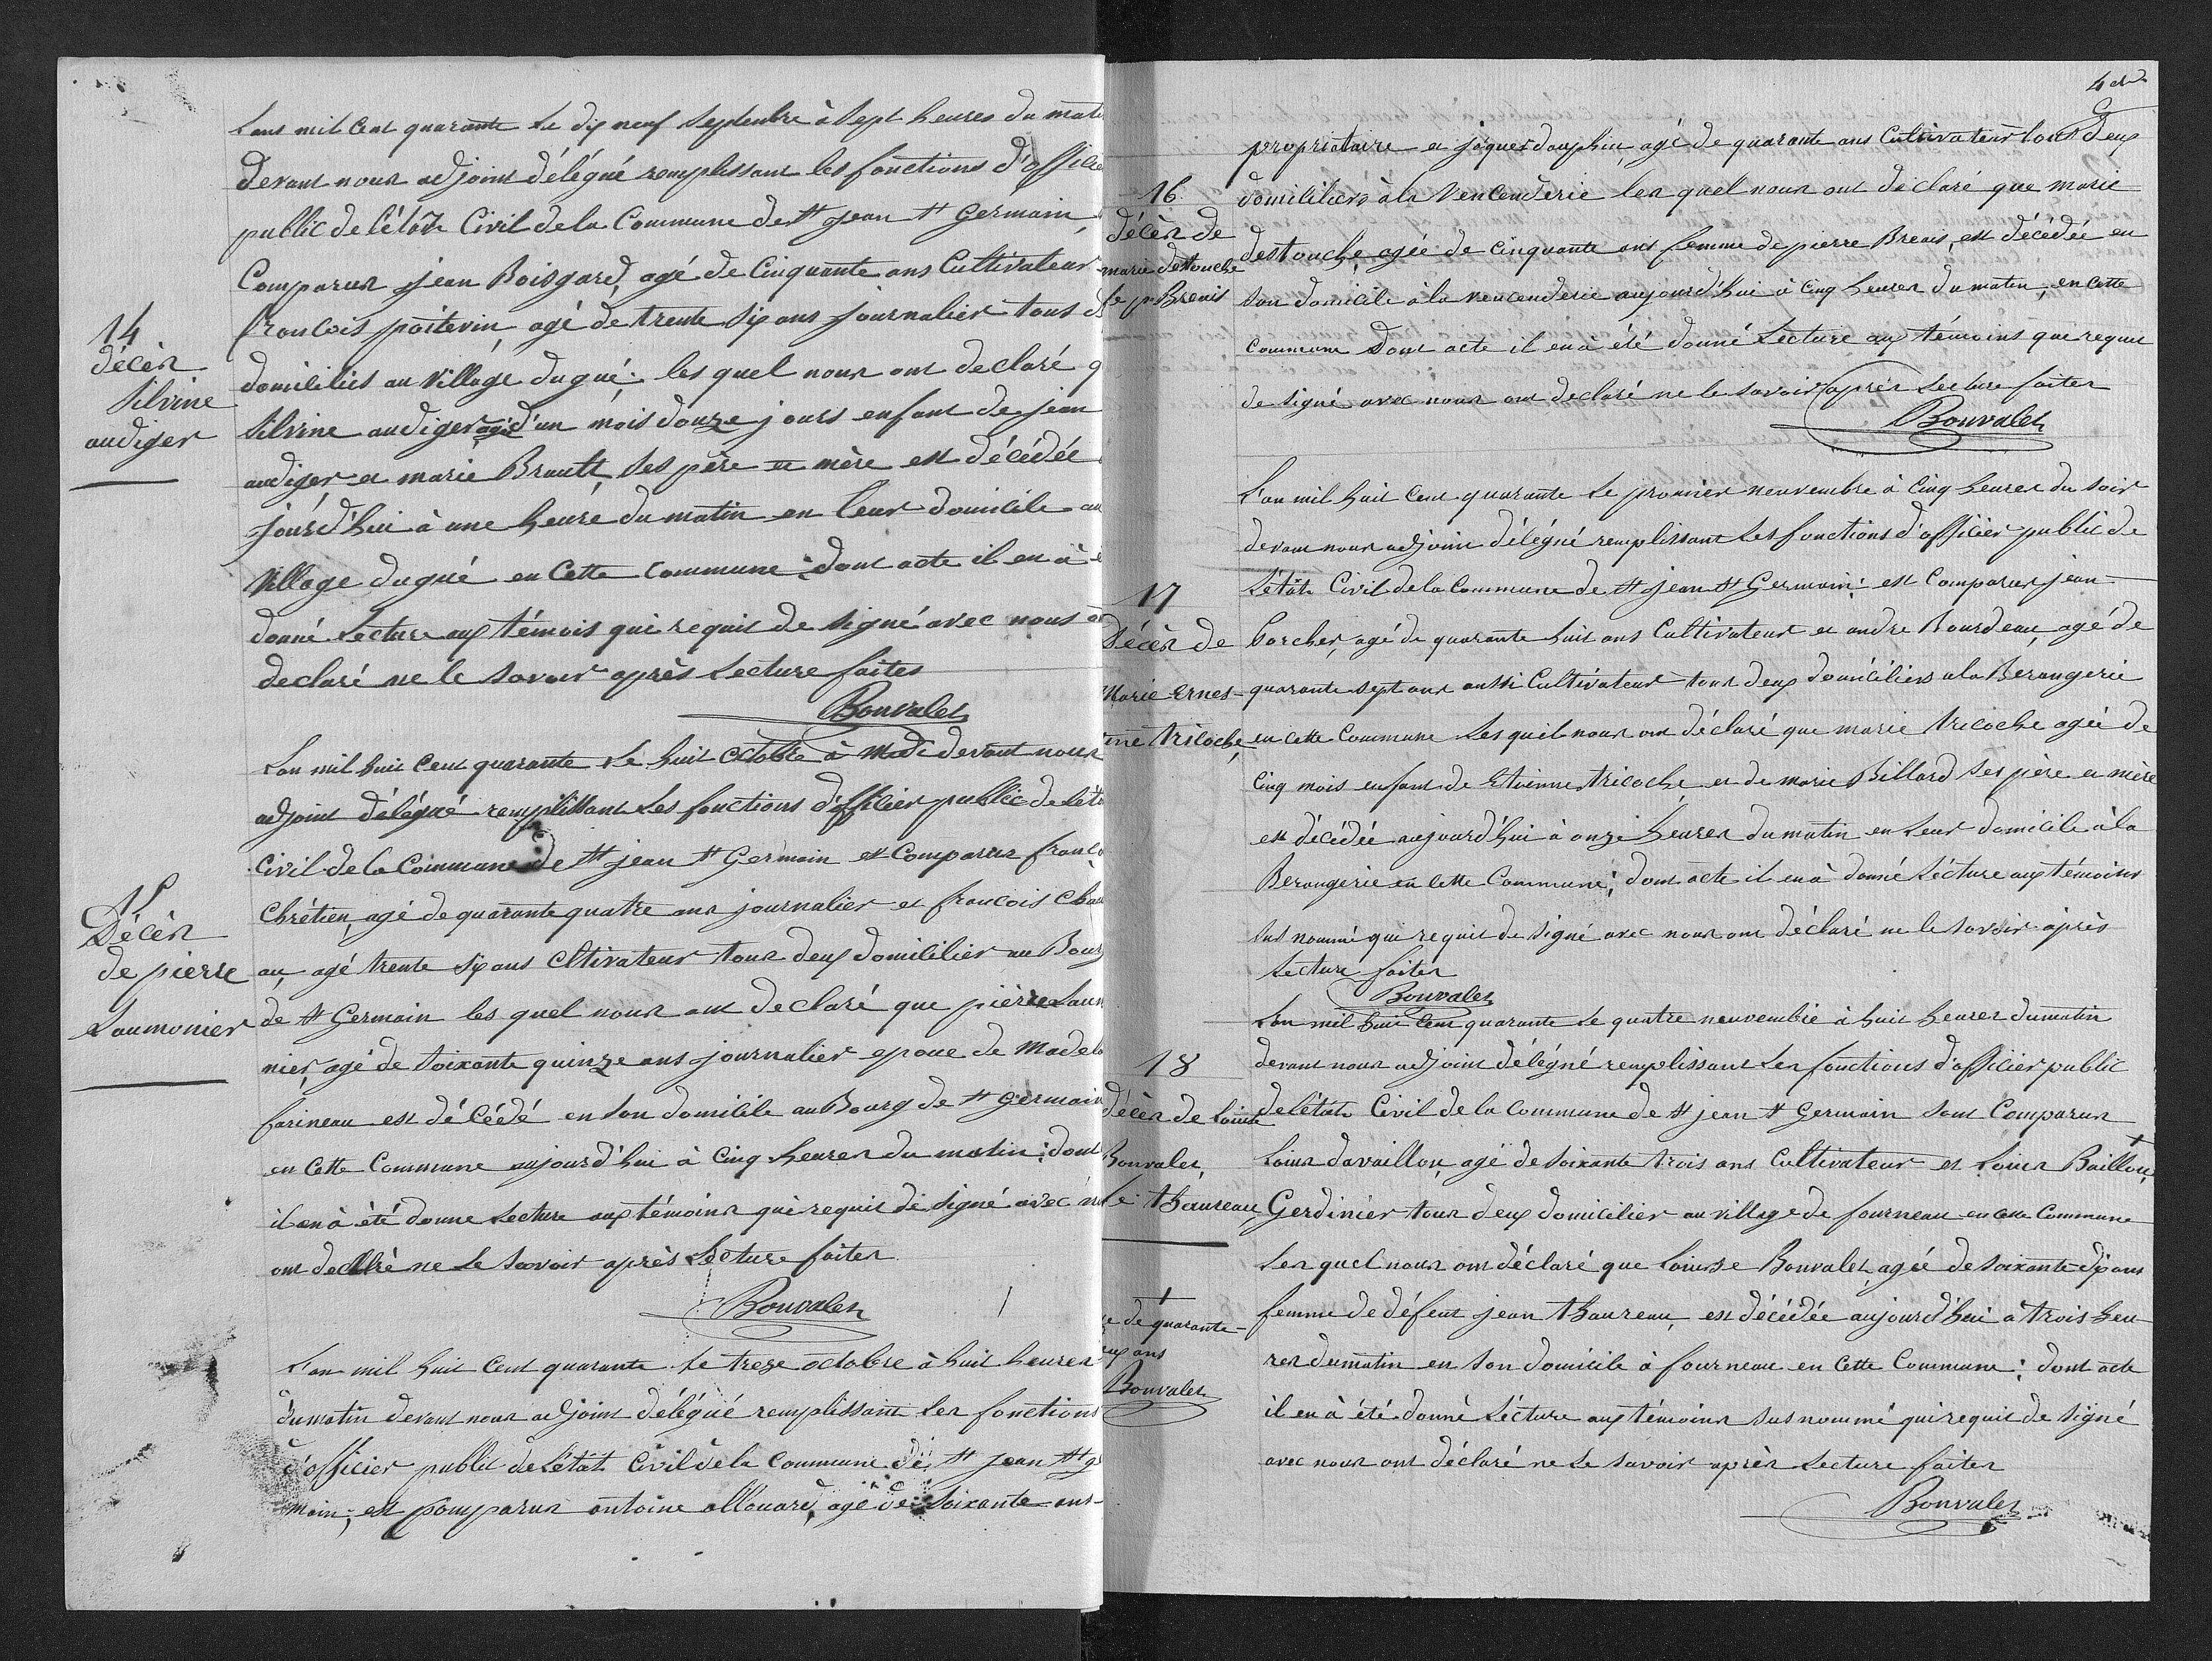 14
décès
Silvine
audiger
Lans mil cent quarante Le dix neuf Septenbre à Sept heures du mati
devant nous adjoint délégué remplissant les fonctions d'officie
public de létat Civil dela Commune de St jean St Germain,
Comparus jean Boisgard, agé de Cinquante ans Cultivateur
francois poitevin, agé de trente Six ans journalier tous d
domiciliés au Village du gué; les quel nous ont declaré q
Silvine audiger agé d'un mois douze jours enfant de jean
audiger et marie Brault, Ses père et mère est décédée
jourd'hui à une heure du matin en leur domicile au
Village dugué en Cette Commune; dont acte il en à é
donné Lecture aux témois qui requis de Signé avec nous o
declaré ne le Savoir après Lecture faites
Bonvalet
15
Décès
de pierre
Laumonier
Lan mil huit Cent quarante Le huit octobre à Midi devant nous
adjoint délégué remplissant Les fonctions d'officier public de léta
Civil de la Commune de St jean St Germain est Comparus franco
Chrétien, agé de quarante quatre ans journalier et francois Chau
au, agé trente Six ans Cltivateur tous deux domicilier au Bourg
de St Germain les quel nous ont declaré que pièrre Laum
nier, agé de Soixante quinze ans journalier epoue de Madela
farineau est décédé en Son domicile au Bourg de St Germain
en Cette Commune aujourd'hui à Cinq heures du matin; dont
il en à été donne Lecture aux témoins qui requis de Signé avec n
ont declaré ne Le Savoir après Lecture faites
Bonvalet
Lan mil huit Cent quarante Le treze octobre à huit heures
du matin devant nous adjoint délégué remplissant Les fonctions
d'officier public de Létat Civil de la Commune de St jean St g
main; est Comparus antoine allouard, agé de Soixante ans
4
16
décès de
marie detouche
fe pr Breais
propriétaire et jaques dauphin, agé de quarante ans Cultivateur tous deux
domiciliers à la Vencenderie les quel nous ont déclaré que marie
destouche, agée de Cinquante ans femme de pierre Breais, est décédée en
Son domicile à la vencenderie aujourd'hui à Cinq heures du matin, en Cette
Commune Dont acte il en à été donné Lecture aux témoins que requis
de Signé avec nous ont declaré ne le Savoir après Lecture faites
Bonvalet
17
Décès de
Marie Ernes-
tine Tricoche,
L'an mil huit Cent quarante Le premier neuvembre à Cinq heures du Soir
devant nous adjoint délégné remplissant Les fonctions d'officier public de
Létat Civil dela Commune de St jean St Germain; est Comparus jean
borcher, agé de quarante huit ans Cultivateur et andre Bourdeau, agé de
quarante Sept ans aussi Cultivateur tous deux domiciliers a la Bérangerie
en cette Commune Les quel nous ont déclaré que marie tricoche agée de
Cinq mois enfant de Etienne tricoche et de marie Billard Ses père et mère
est décédée aujourd'hui à onze heures du matin en Leur domicile à la
Berangerie en Cette Commune; dont acte il en à donné Lécture aux témoins
Sus nommé que requis de Signé avec nous ont déclaré ne le Savoir après
Lecture faites
Bonvalet
18
décès de Louise
Bonvalet,
fe thaureau,
Lan mil huit Cent quarante Le quatre neuvembre à huit heures du matin
devant nous adjoint délégné remplissant Les fonctions d'officier public
de létat Civil de la Commune de St jean St Germain Sont Comparus
Louis davaillou, agé de Soixante trois ans Cultivateur et Louis Baillou,
Gerdinier tous deux domicilier au village de fourneau en cette Commune
Les quel nous ont déclaré que Louisse Bonvalet, agée de Soixante Dix ans
femme de défeut jean thaureau, est décédée aujourd'hui à trois heu
res du matin en Son domicile à fourneau en Cette Commune; dont acte
il en à été donné Lécture aux témoins Sus nommé qui requis de Signé
avec nous ont déclaré ne Le Savoir après Lecture faites
Bonvalet
de quarante
ans
Bonvalet